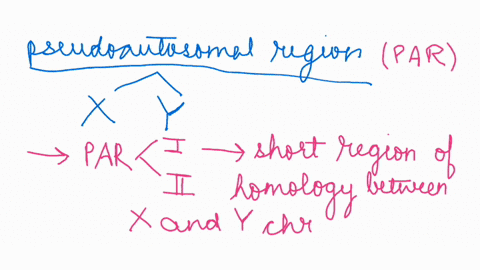 pseudoautosomal region (PAR)
X Y
→ PAR < I → short region of
II homology between
X and Y chr